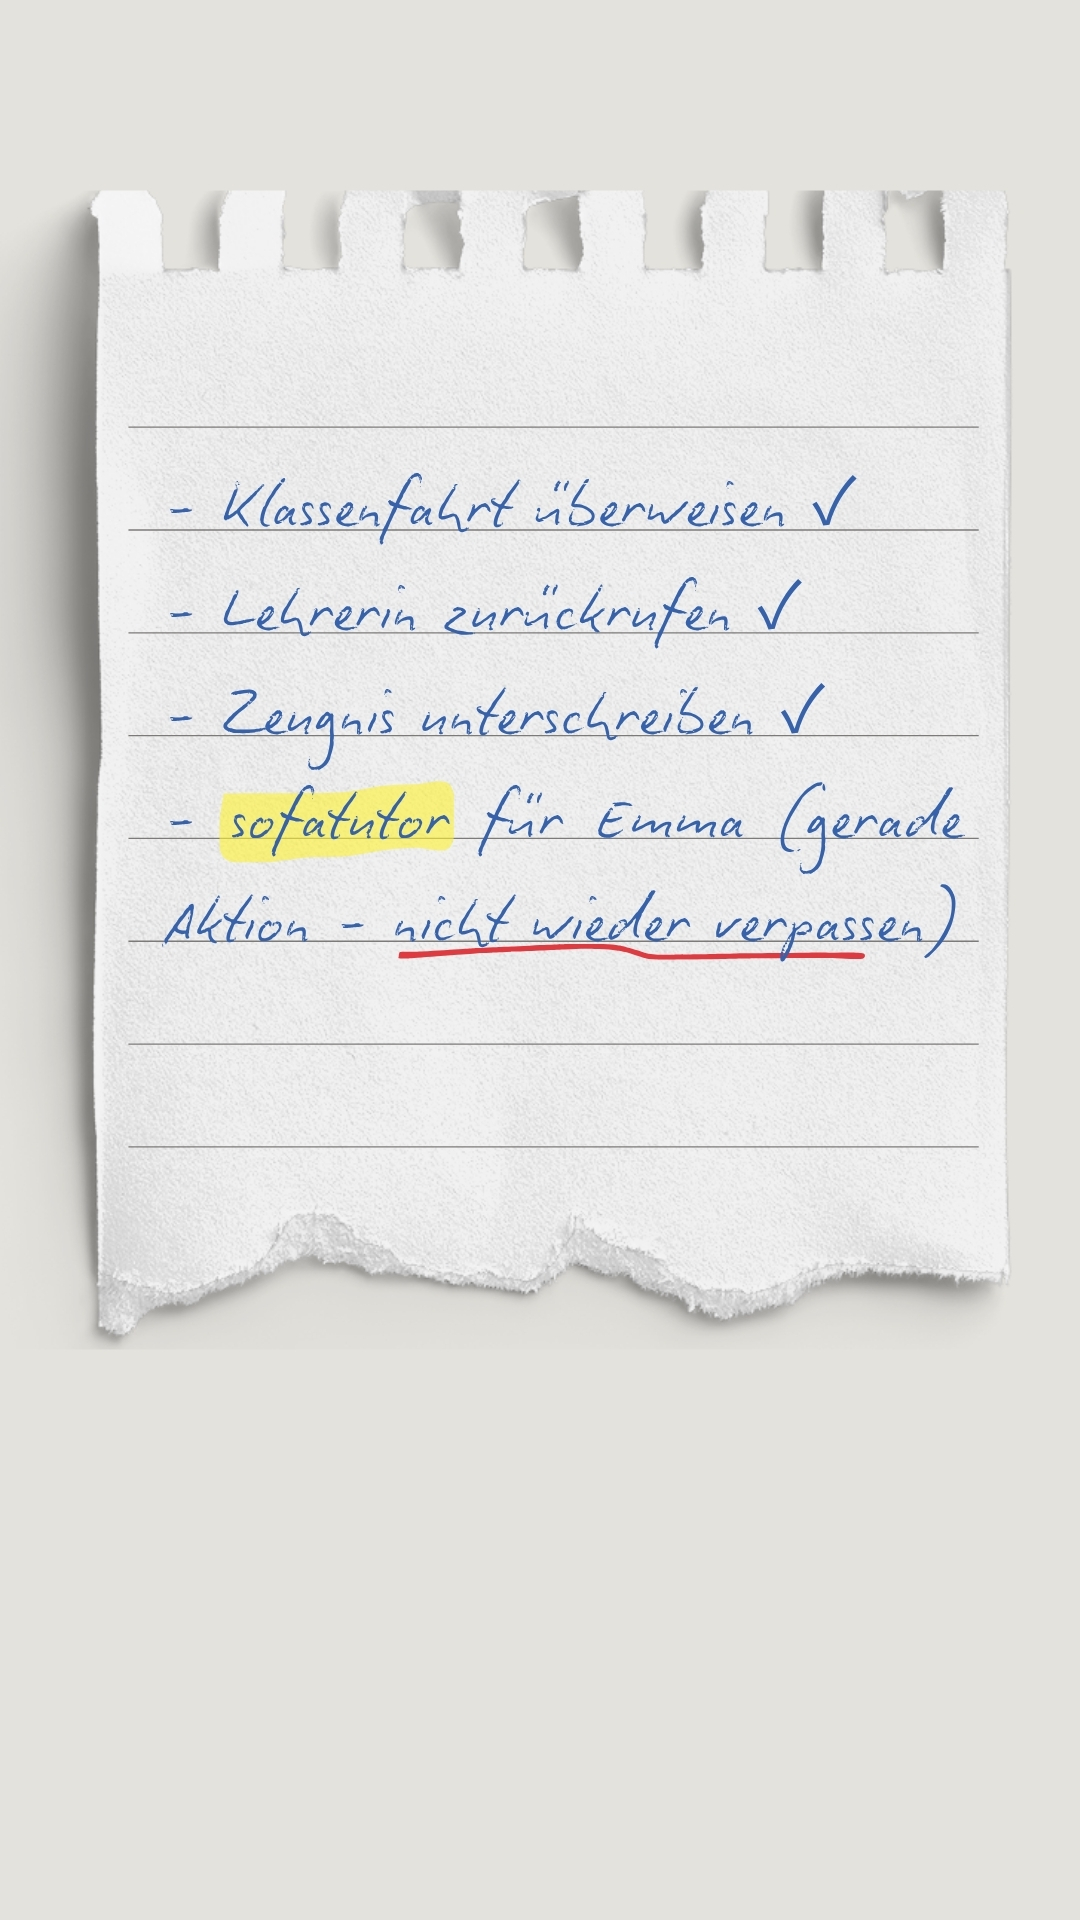 - Klassenfahrt überweisen ✓
- Lehrerin zurückrufen ✓
- Zeugnis unterschreiben ✓
- sofatutor für Emma (gerade
Aktion - nicht wieder verpassen)